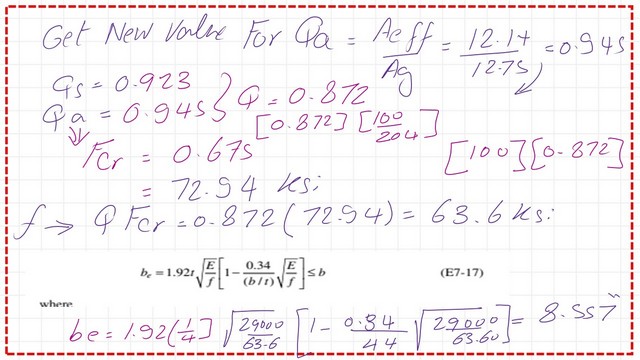 Get New value For Qa = Aeff/Ag = 12.17/12.75 = 0.945
Qs = 0.923
Qa = 0.945 } Q = 0.872
[0.872] [100/204]
Fcr = 0.675 [100] [0.872]
= 72.94 ksi
f → Q Fcr = 0.872 (72.94) = 63.6 ksi
be = 1.92t √(E/f) [1 − 0.34/(b/t) √(E/f)] ≤ b (E7-17)
where
be = 1.92 (1/4) √(29000/63.6) [1 - 0.34/44 √(29000/63.60)] = 8.557"